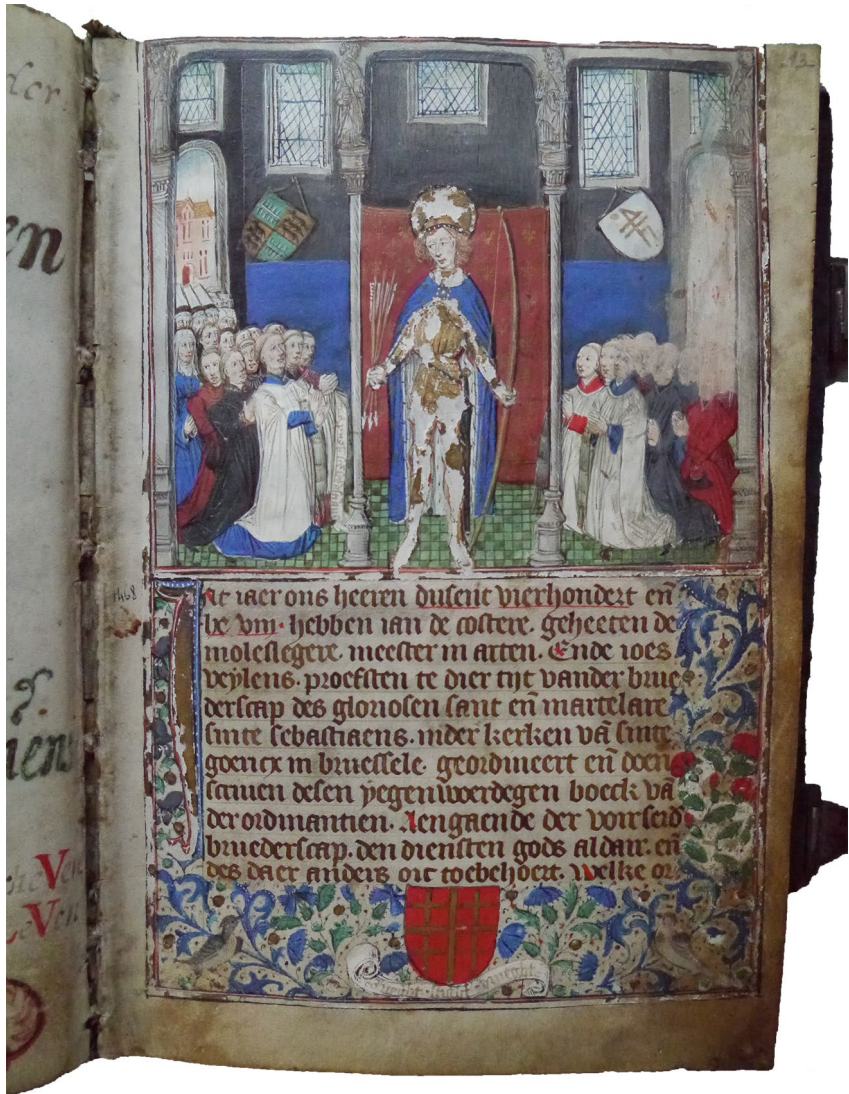 der.
en
13
1468
Jnt iaer ons heeren dusent vierhondert en̄
lxviii · hebben ian de costere · geheeten de
moleslegere · meester in arten · Ende ioes
veylens · proefsten te dier tijt vander brue
derscap des gloriosen sant en̄ martelare
sinte sebastiaens · inder kerken vā sinte
goericx in bruessele · geordineert en̄ doen
scriuen desen yegenwoerdegen boeck vā
der ordinantien · Aengaende der voirseid
bruederscap · den diensten gods aldair · en̄
des daer anders oit toebehoert. Welke or